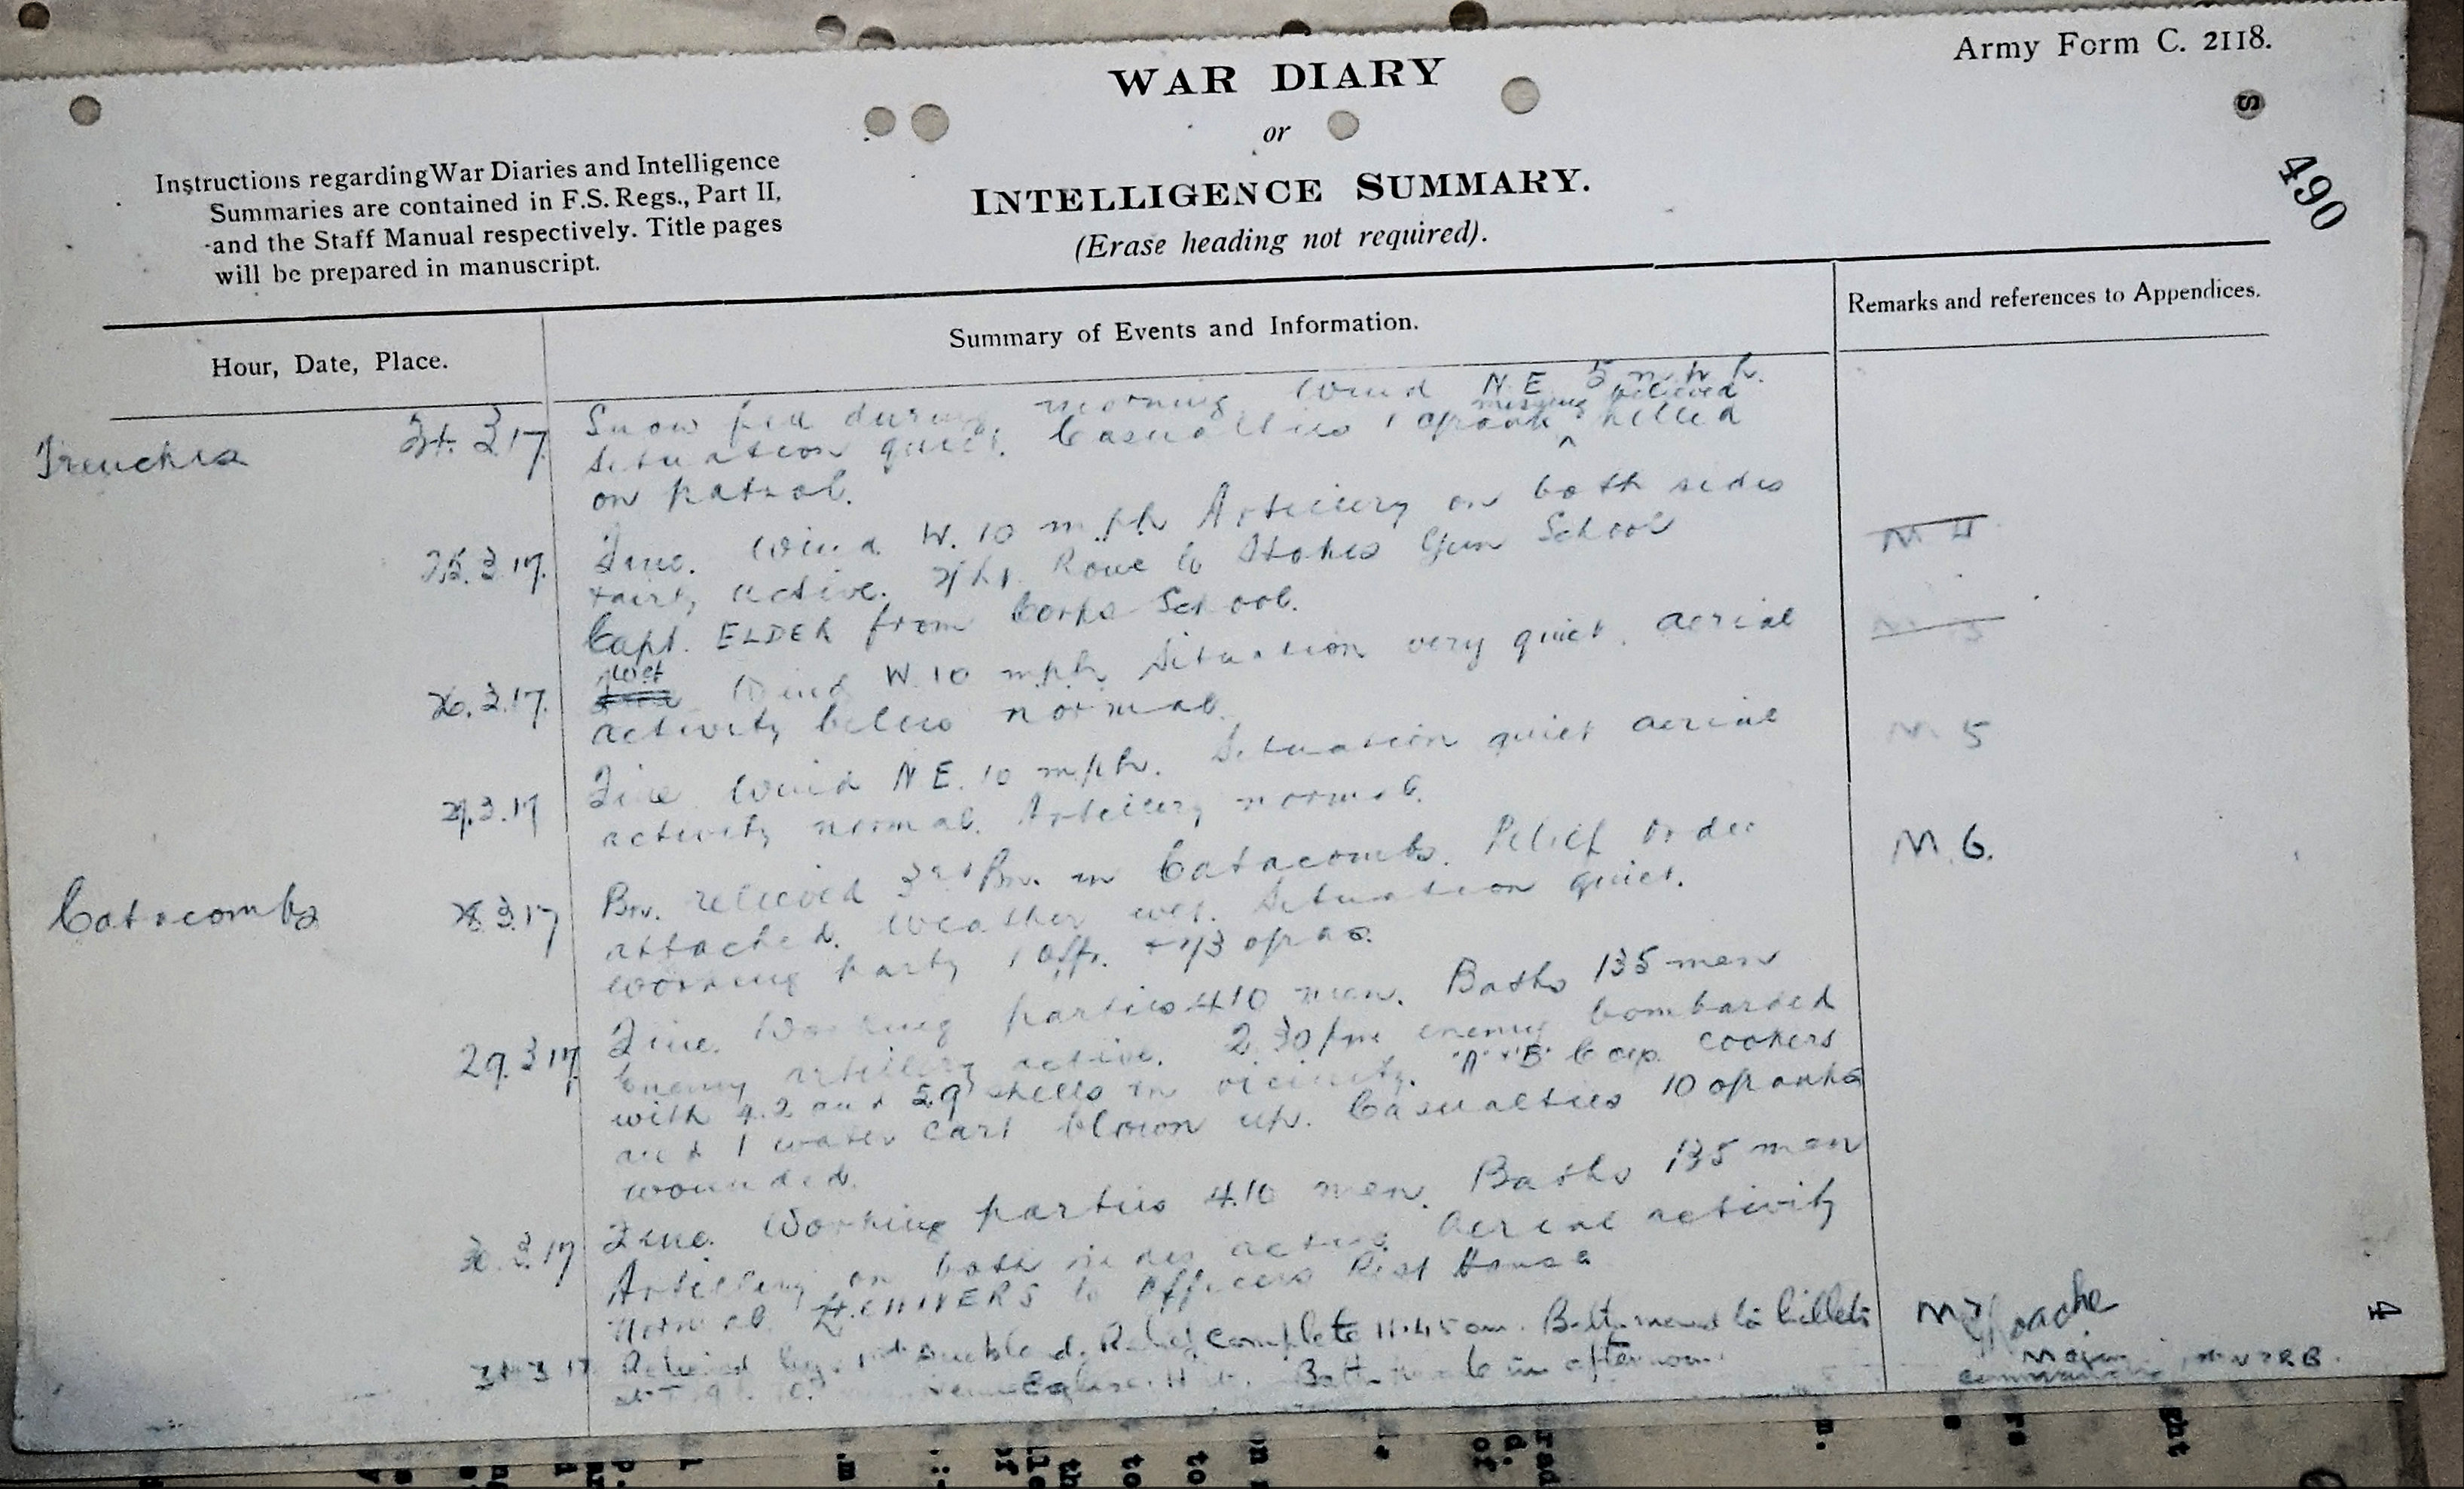 Army Form C. 2118.
WAR DIARY
or
INTELLIGENCE SUMMARY.
(Erase heading not required).
Instructions regarding War Diaries and Intelligence
Summaries are contained in F.S. Regs., Part II,
and the Staff Manual respectively. Title pages
will be prepared in manuscript.
S
490
Hour, Date, Place.
Summary of Events and Information.
Remarks and references to Appendices.
Trenches 24.3.17 Snow during morning Wind N.E. 5 m.p.h.
missing believed
Situation quiet. Casualties 1 killed
on patrol.
25.3.17. Fine. Wind W. 10 m.p.h. Artillery on both sides
M 4
fairly active. Rowe to Stokes Gun School
Capt. ELDER from Corps School.
wet
26.3.17. Wind W. 10 m.p.h. Situation very quiet. aerial
activity below normal.
27.3.17 Fine Wind N E. 10 m.p.h. Situation quiet aerial
M 5
activity normal. Artillery normal.
Catacombs 28.3.17 Bn. relieved 3rd Bn. in Catacombs. Relief order
M. 6.
attached. Weather wet. Situation quiet.
Working party 1 Off. + 73
29.3.17 Fine. Working parties 410 men. Baths 135 men
Enemy artillery active. 2.30 pm enemy bombarded
with 4.2 and 5.9 shells in vicinity. "A" + "B" Coy. cookers
and 1 water cart blown up. Casualties 10
wounded.
30.3.17 Fine. Working parties 410 men. Baths 135 men
Artillery on both sides active. Aerial activity
normal. CHIVERS to Officers Rest House
31.3.17 Relieved by Auckland. Relief complete 11.45 am. Battn moved to billets
at in afternoon.
Roache
Major
commanding N Z R B.
4